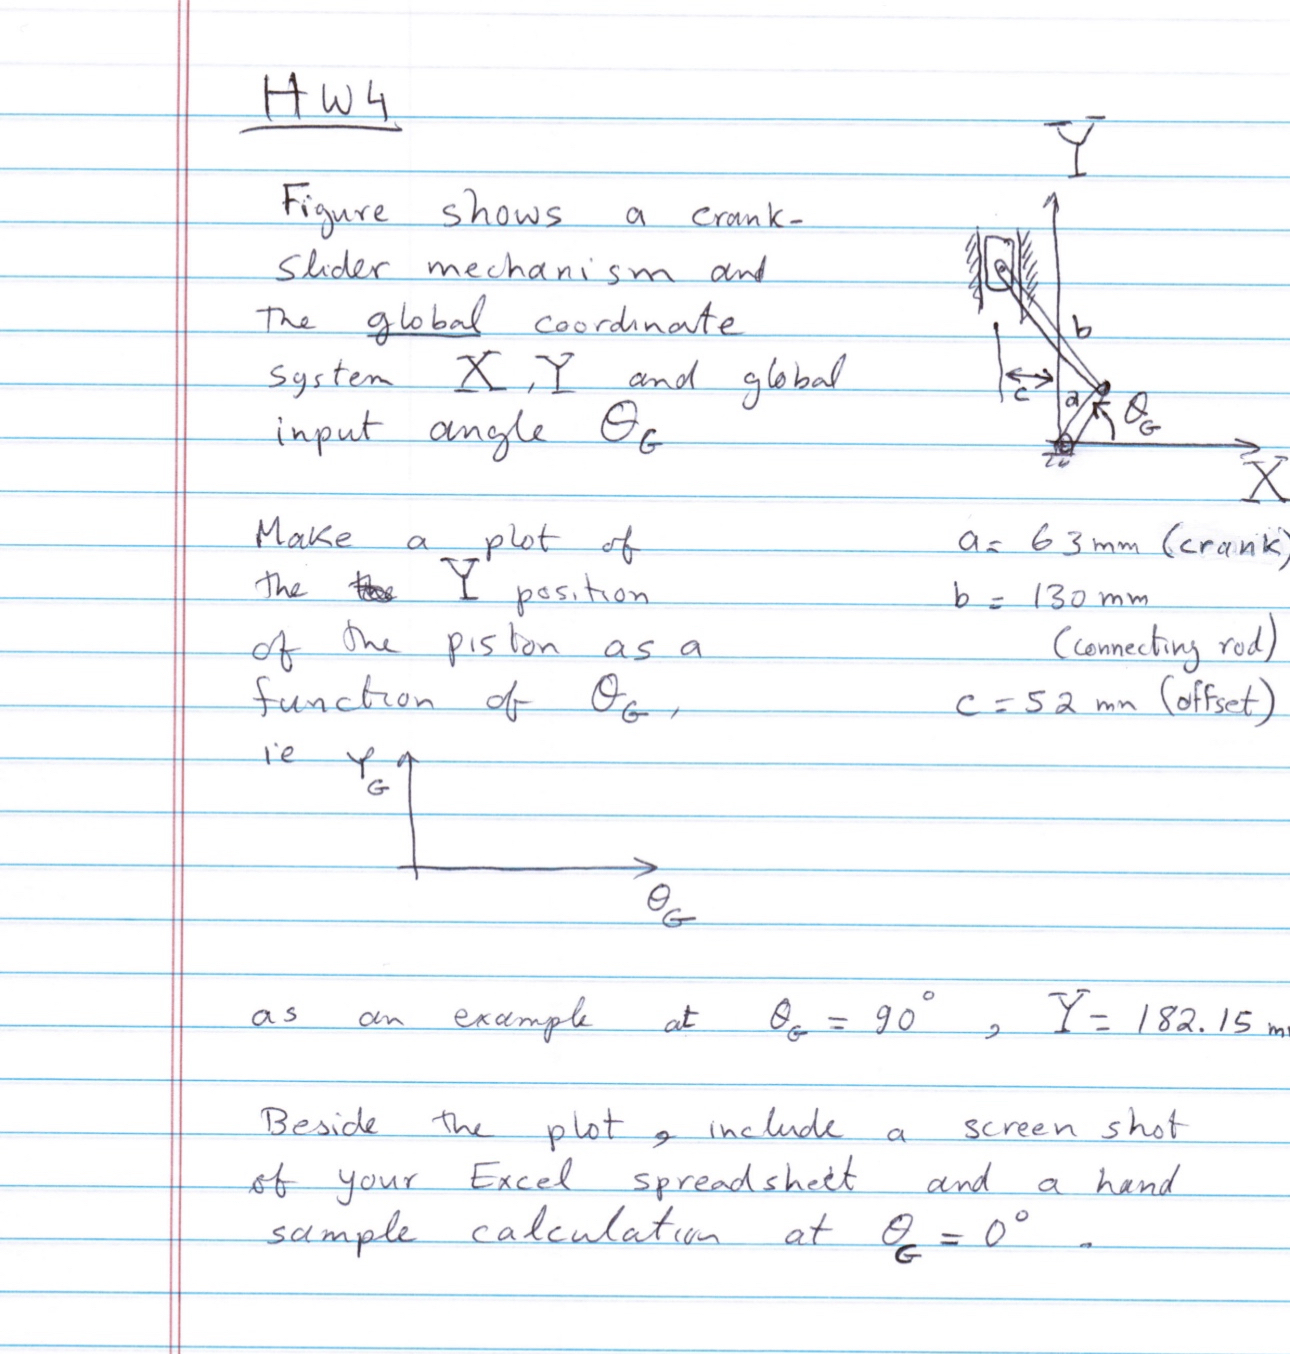 HW4
Y
Figure shows a crank-
slider mechanism and
the global coordinate
system X, Y and global
input angle θG
b
c
a
θG
X
Make a plot of
the Y position
of the piston as a
function of θG,
ie
YG
θG
a = 63 mm (crank)
b = 130 mm
(connecting rod)
c = 52 mm (offset)
as an example at θG = 90°, Y = 182.15 m
Beside the plot, include a screen shot
of your Excel spreadsheet and a hand
sample calculation at θG = 0°.